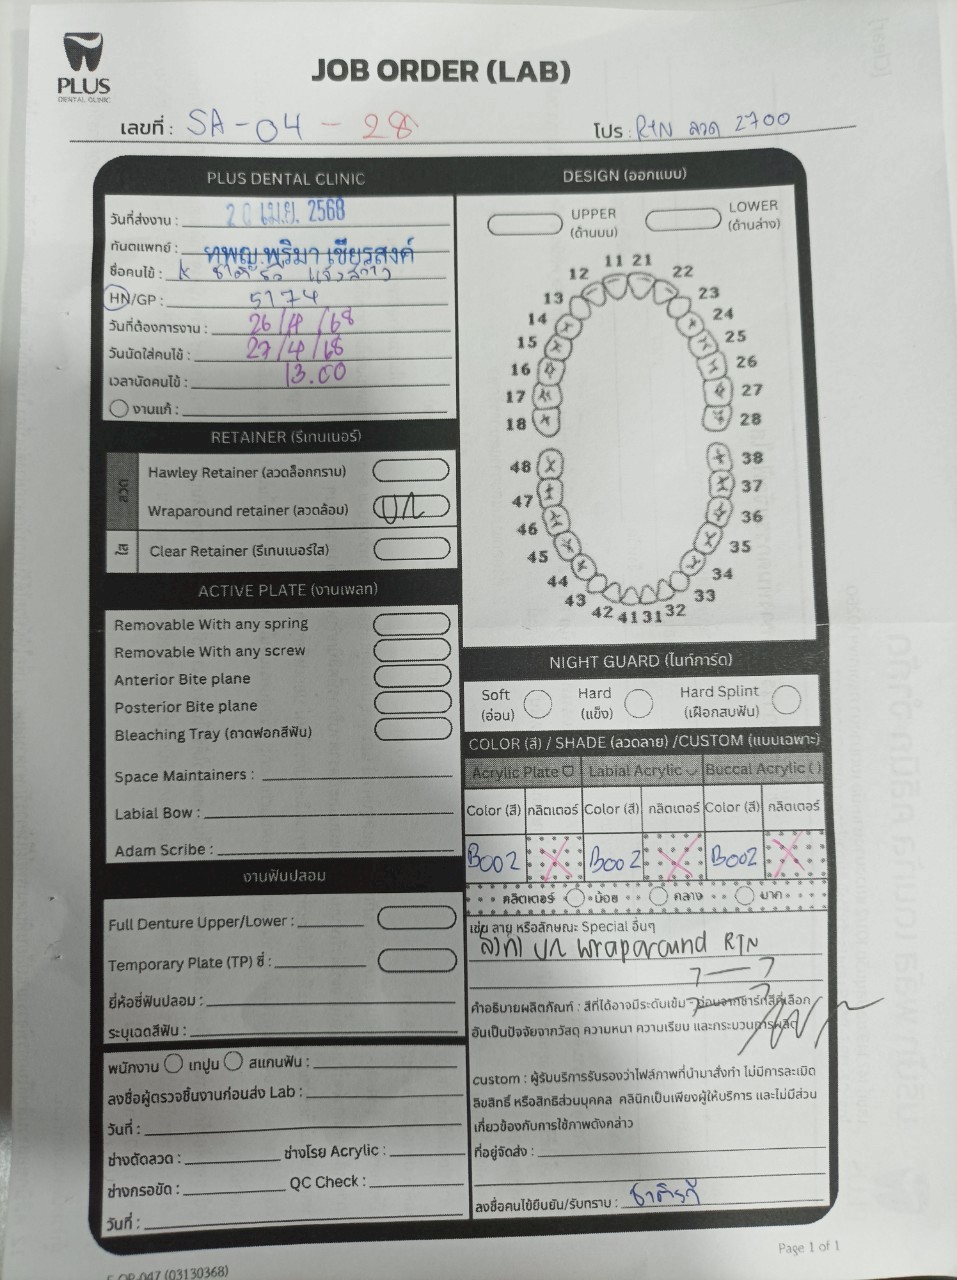 PLUS
DENTAL CLINIC
JOB ORDER (LAB)
เลขที่ : SA-04 - 28
โปร : RTN ลวด 2700
PLUS DENTAL CLINIC
วันที่ส่งงาน : 20 เม.ย. 2568
ทันตแพทย์ : ทพญ.พูริมา เชียรสงค์
ชื่อคนไข้ : K
HN/GP : 5174
วันที่ต้องการงาน : 26/4/68
วันนัดใส่คนไข้ : 27/4/68
เวลานัดคนไข้ : 13.00
งานแก้ :
RETAINER (รีเทนเนอร์)
ลวด
Hawley Retainer (ลวดล็อกกราม)
Wraparound retainer (ลวดล้อม) U/L
ใส
Clear Retainer (รีเทนเนอร์ใส)
ACTIVE PLATE (งานเพลท)
Removable With any spring
Removable With any screw
Anterior Bite plane
Posterior Bite plane
Bleaching Tray (ถาดฟอกสีฟัน)
Space Maintainers :
Labial Bow :
Adam Scribe :
งานฟันปลอม
Full Denture Upper/Lower :
Temporary Plate (TP) ซี่ :
ยี่ห้อซี่ฟันปลอม :
ระบุเฉดสีฟัน :
พนักงาน เทปูน สแกนฟัน :
ลงชื่อผู้ตรวจชิ้นงานก่อนส่ง Lab :
วันที่ :
ช่างดัดลวด : ช่างโรย Acrylic :
ช่างกรอขัด : QC Check :
วันที่ :
DESIGN (ออกแบบ)
UPPER (ด้านบน) LOWER (ด้านล่าง)
11 21
12 22
13 23
14 24
15 25
16 26
17 27
18 28
48 38
47 37
46 36
45 35
44 34
43 33
42 41 31 32
NIGHT GUARD (ไนท์การ์ด)
Soft (อ่อน) Hard (แข็ง) Hard Splint (เฝือกสบฟัน)
COLOR (สี) / SHADE (ลวดลาย) /CUSTOM (แบบเฉพาะ)
Acrylic Plate Labial Acrylic Buccal Acrylic ( )
Color (สี) กลิตเตอร์ Color (สี) กลิตเตอร์ Color (สี) กลิตเตอร์
B002 X B002 X B002 X
กลิตเตอร์ น้อย กลาง มาก
เช่น ลาย หรือลักษณะ Special อื่นๆ
U/L wraparound RTN
7—7
คำอธิบายผลิตภัณฑ์ : สีที่ได้อาจมีระดับเข้ม - อ่อนจากชาร์ทสีที่เลือก
อันเป็นปัจจัยจากวัสดุ ความหนา ความเรียบ และกระบวนการผลิต
custom : ผู้รับบริการรับรองว่าไฟล์ภาพที่นำมาสั่งทำ ไม่มีการละเมิด
ลิขสิทธิ์ หรือสิทธิส่วนบุคคล คลินิกเป็นเพียงผู้ให้บริการ และไม่มีส่วน
เกี่ยวข้องกับการใช้ภาพดังกล่าว
ที่อยู่จัดส่ง :
ลงชื่อคนไข้ยืนยัน/รับทราบ :
Page 1 of 1
F-OP-047 (03130368)